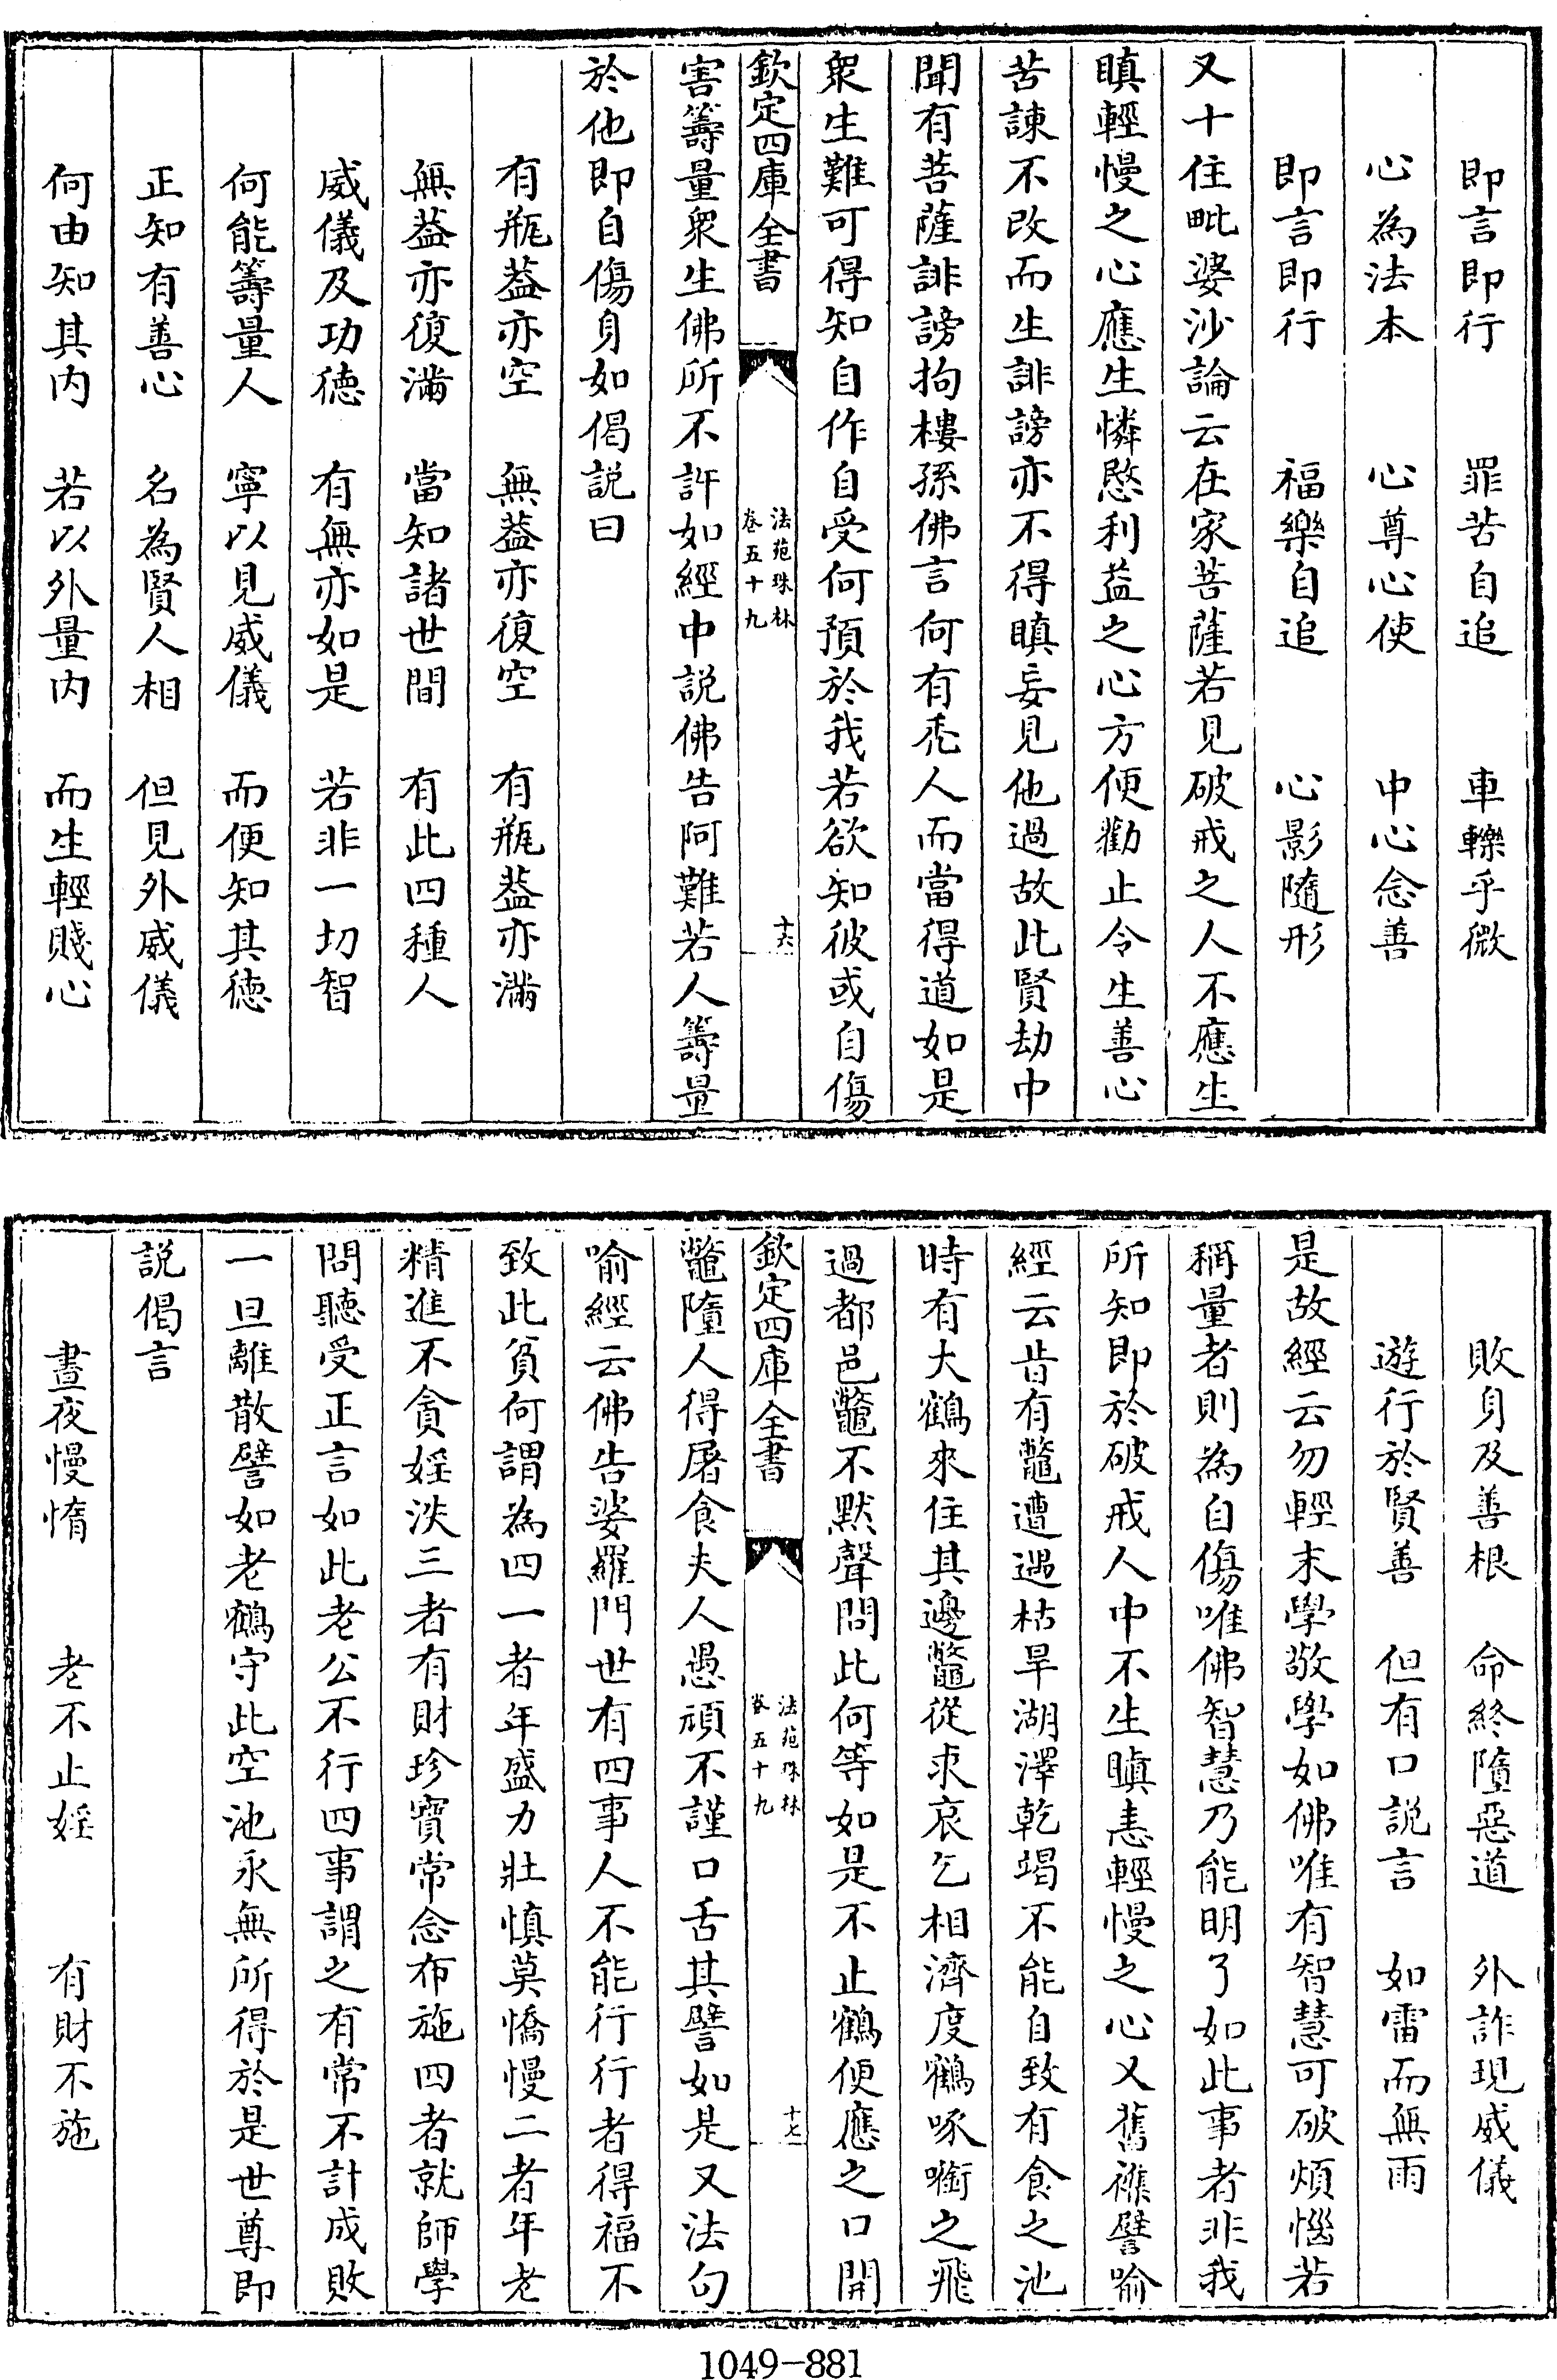 即言即行　罪苦自追　車轢乎微
心為法本　心尊心使　中心念善
即言即行　福樂自追　心影隨形
又十住毗婆沙論云在家菩薩若見破戒之人不應生
瞋輕慢之心應生憐愍利益之心方便勸止令生善心
苦諫不改而生誹謗亦不得瞋妄見他過故此賢劫中
聞有菩薩誹謗拘樓孫佛言何有禿人而當得道如是
衆生難可得知自作自受何預於我若欲知彼或自傷
欽定四庫全書　法苑珠林卷五十九　十六
害籌量衆生佛所不許如經中説佛告阿難若人籌量
於他即自傷身如偈説曰
有瓶葢亦空　無葢亦復空　有瓶葢亦滿
無葢亦復滿　當知諸世間　有此四種人
威儀及功徳　有無亦如是　若非一切智
何能籌量人　寧以見威儀　而便知其徳
正知有善心　名為賢人相　但見外威儀
何由知其内　若以外量内　而生輕賤心
敗身及善根　命終墮惡道　外詐現威儀
遊行於賢善　但有口説言　如雷而無雨
是故經云勿輕末學敬學如佛唯有智慧可破煩惱若
稱量者則為自傷唯佛智慧乃能明了如此事者非我
所知即於破戒人中不生瞋恚輕慢之心又舊襍譬喻
經云昔有鼈遭遇枯旱湖澤乾竭不能自致有食之池
時有大鶴來住其邊鼈從求哀乞相濟度鶴啄銜之飛
過都邑鼈不默聲問此何等如是不止鶴便應之口開
欽定四庫全書　法苑珠林卷五十九　十七
鼈墮人得屠食夫人愚頑不謹口舌其譬如是又法句
喻經云佛告婆羅門世有四事人不能行行者得福不
致此貧何謂為四一者年盛力壯慎莫憍慢二者年老
精進不貪婬泆三者有財珍寳常念布施四者就師學
問聽受正言如此老公不行四事謂之有常不計成敗
一旦離散譬如老鶴守此空池永無所得於是世尊即
説偈言
晝夜慢惰　老不止婬　有財不施
1049-881